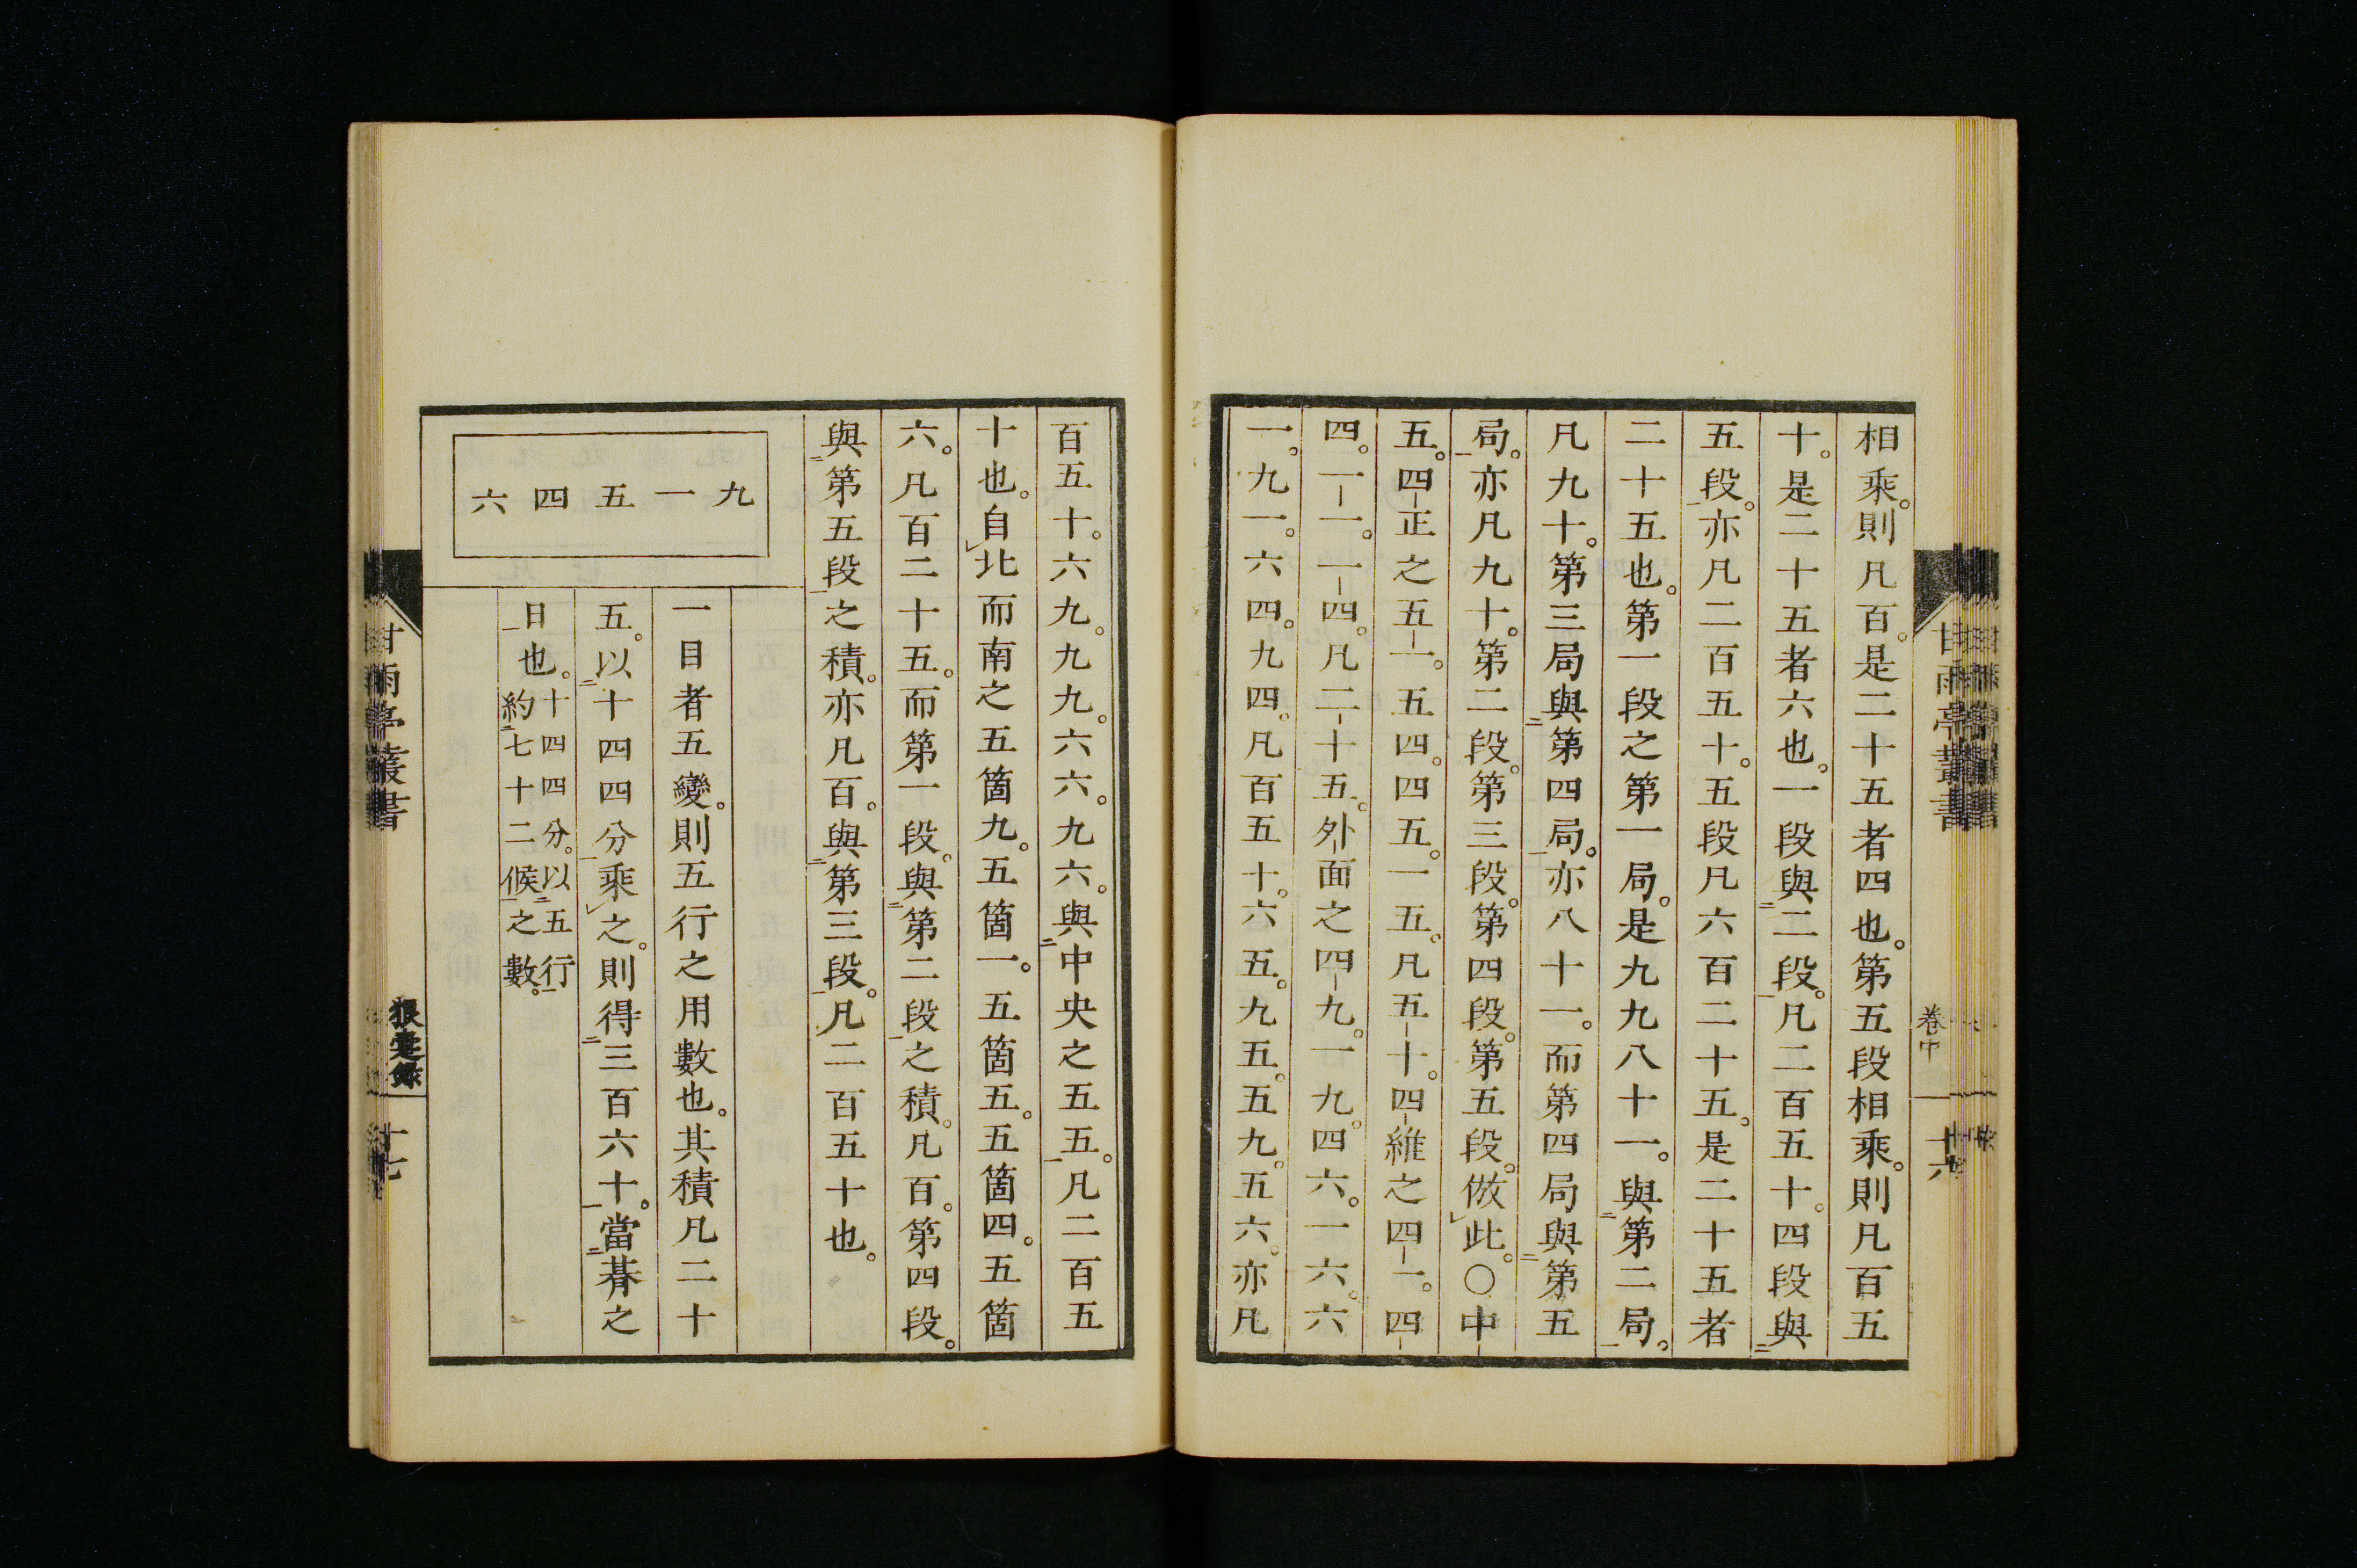 相乘。則凡百。是二十五者四也。第五段相乘。則凡百五
十。是二十五者六也。一段與二段。凡二百五十。四段與
五段。亦凡二百五十。五段凡六百二十五。是二十五者
二十五也。第一段之第一局。是九九八十一。與第二局。
凡九十。第三局與第四局。亦八十一。而第四局與第五
局。亦凡九十。第二段。第三段。第四段。第五段。倣此。○中
五。四正之五一。五四。四五。一五。凡五十。四維之四一。四
四。一一。一四。凡二十五。外面之四九。一九。四六。一六。六
一。九一。六四。九四。凡百五十。六五。九五。五九。五六。亦凡
卷中
十六
甘雨亭叢書
百五十。六九。九九。六六。九六。與中央之五五。凡二百五
十也。自北而南之五箇九。五箇一。五箇五。五箇四。五箇
六。凡百二十五。而第一段。與第二段之積。凡百。第四段。
與第五段之積。亦凡百。與第三段。凡二百五十也。
九一五四六
一目者五變。則五行之用數也。其積凡二十
五。以十四四分乘之。則得三百六十。當朞之
日也。十四四分。以五行
約七十二候之數。
甘雨亭叢書
狼疐錄
十七